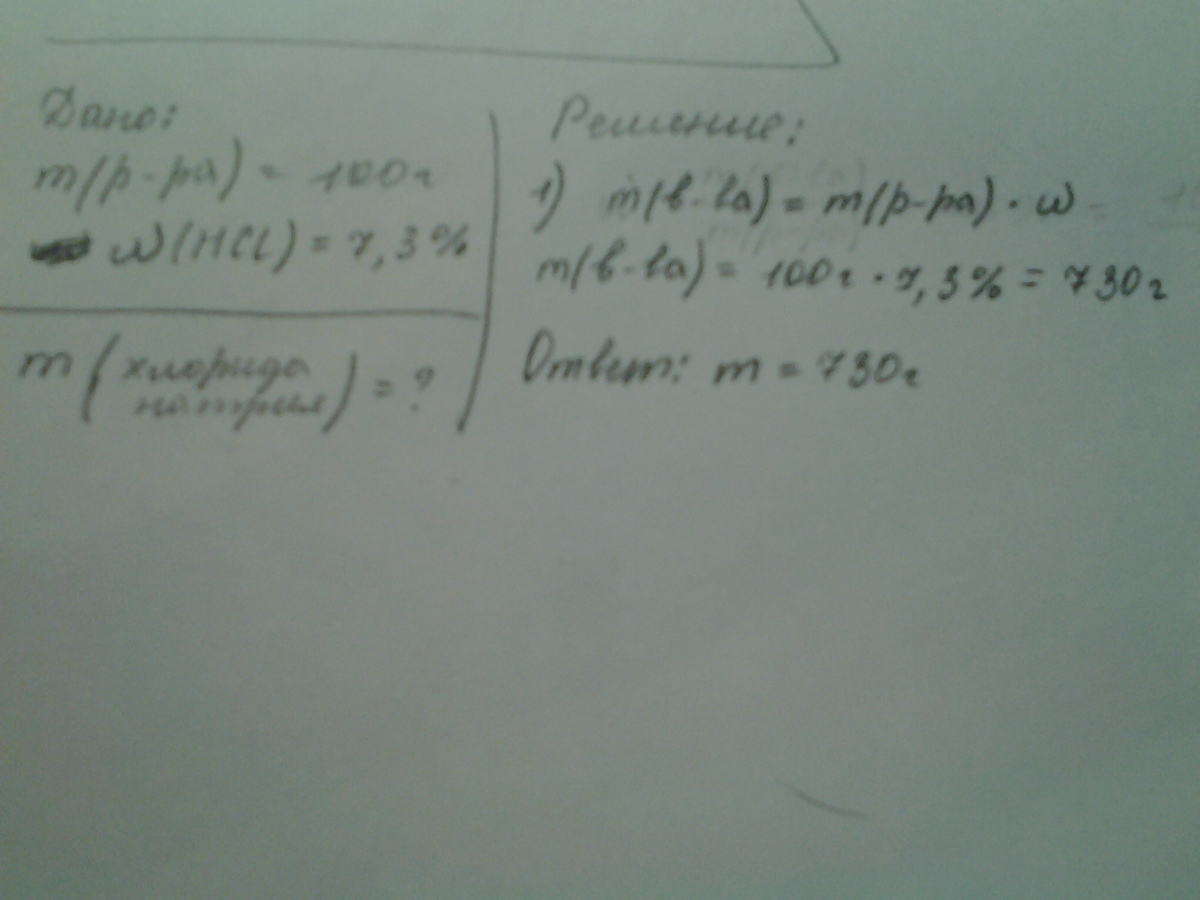 Дано:
m(р-ра) = 100г
ω(HCl) = 7,3%
m (хлорида натрия) = ?
Решение:
1) m(в-ва) = m(р-ра) · ω
m(в-ва) = 100г · 7,3% = 730г
Ответ: m = 730г